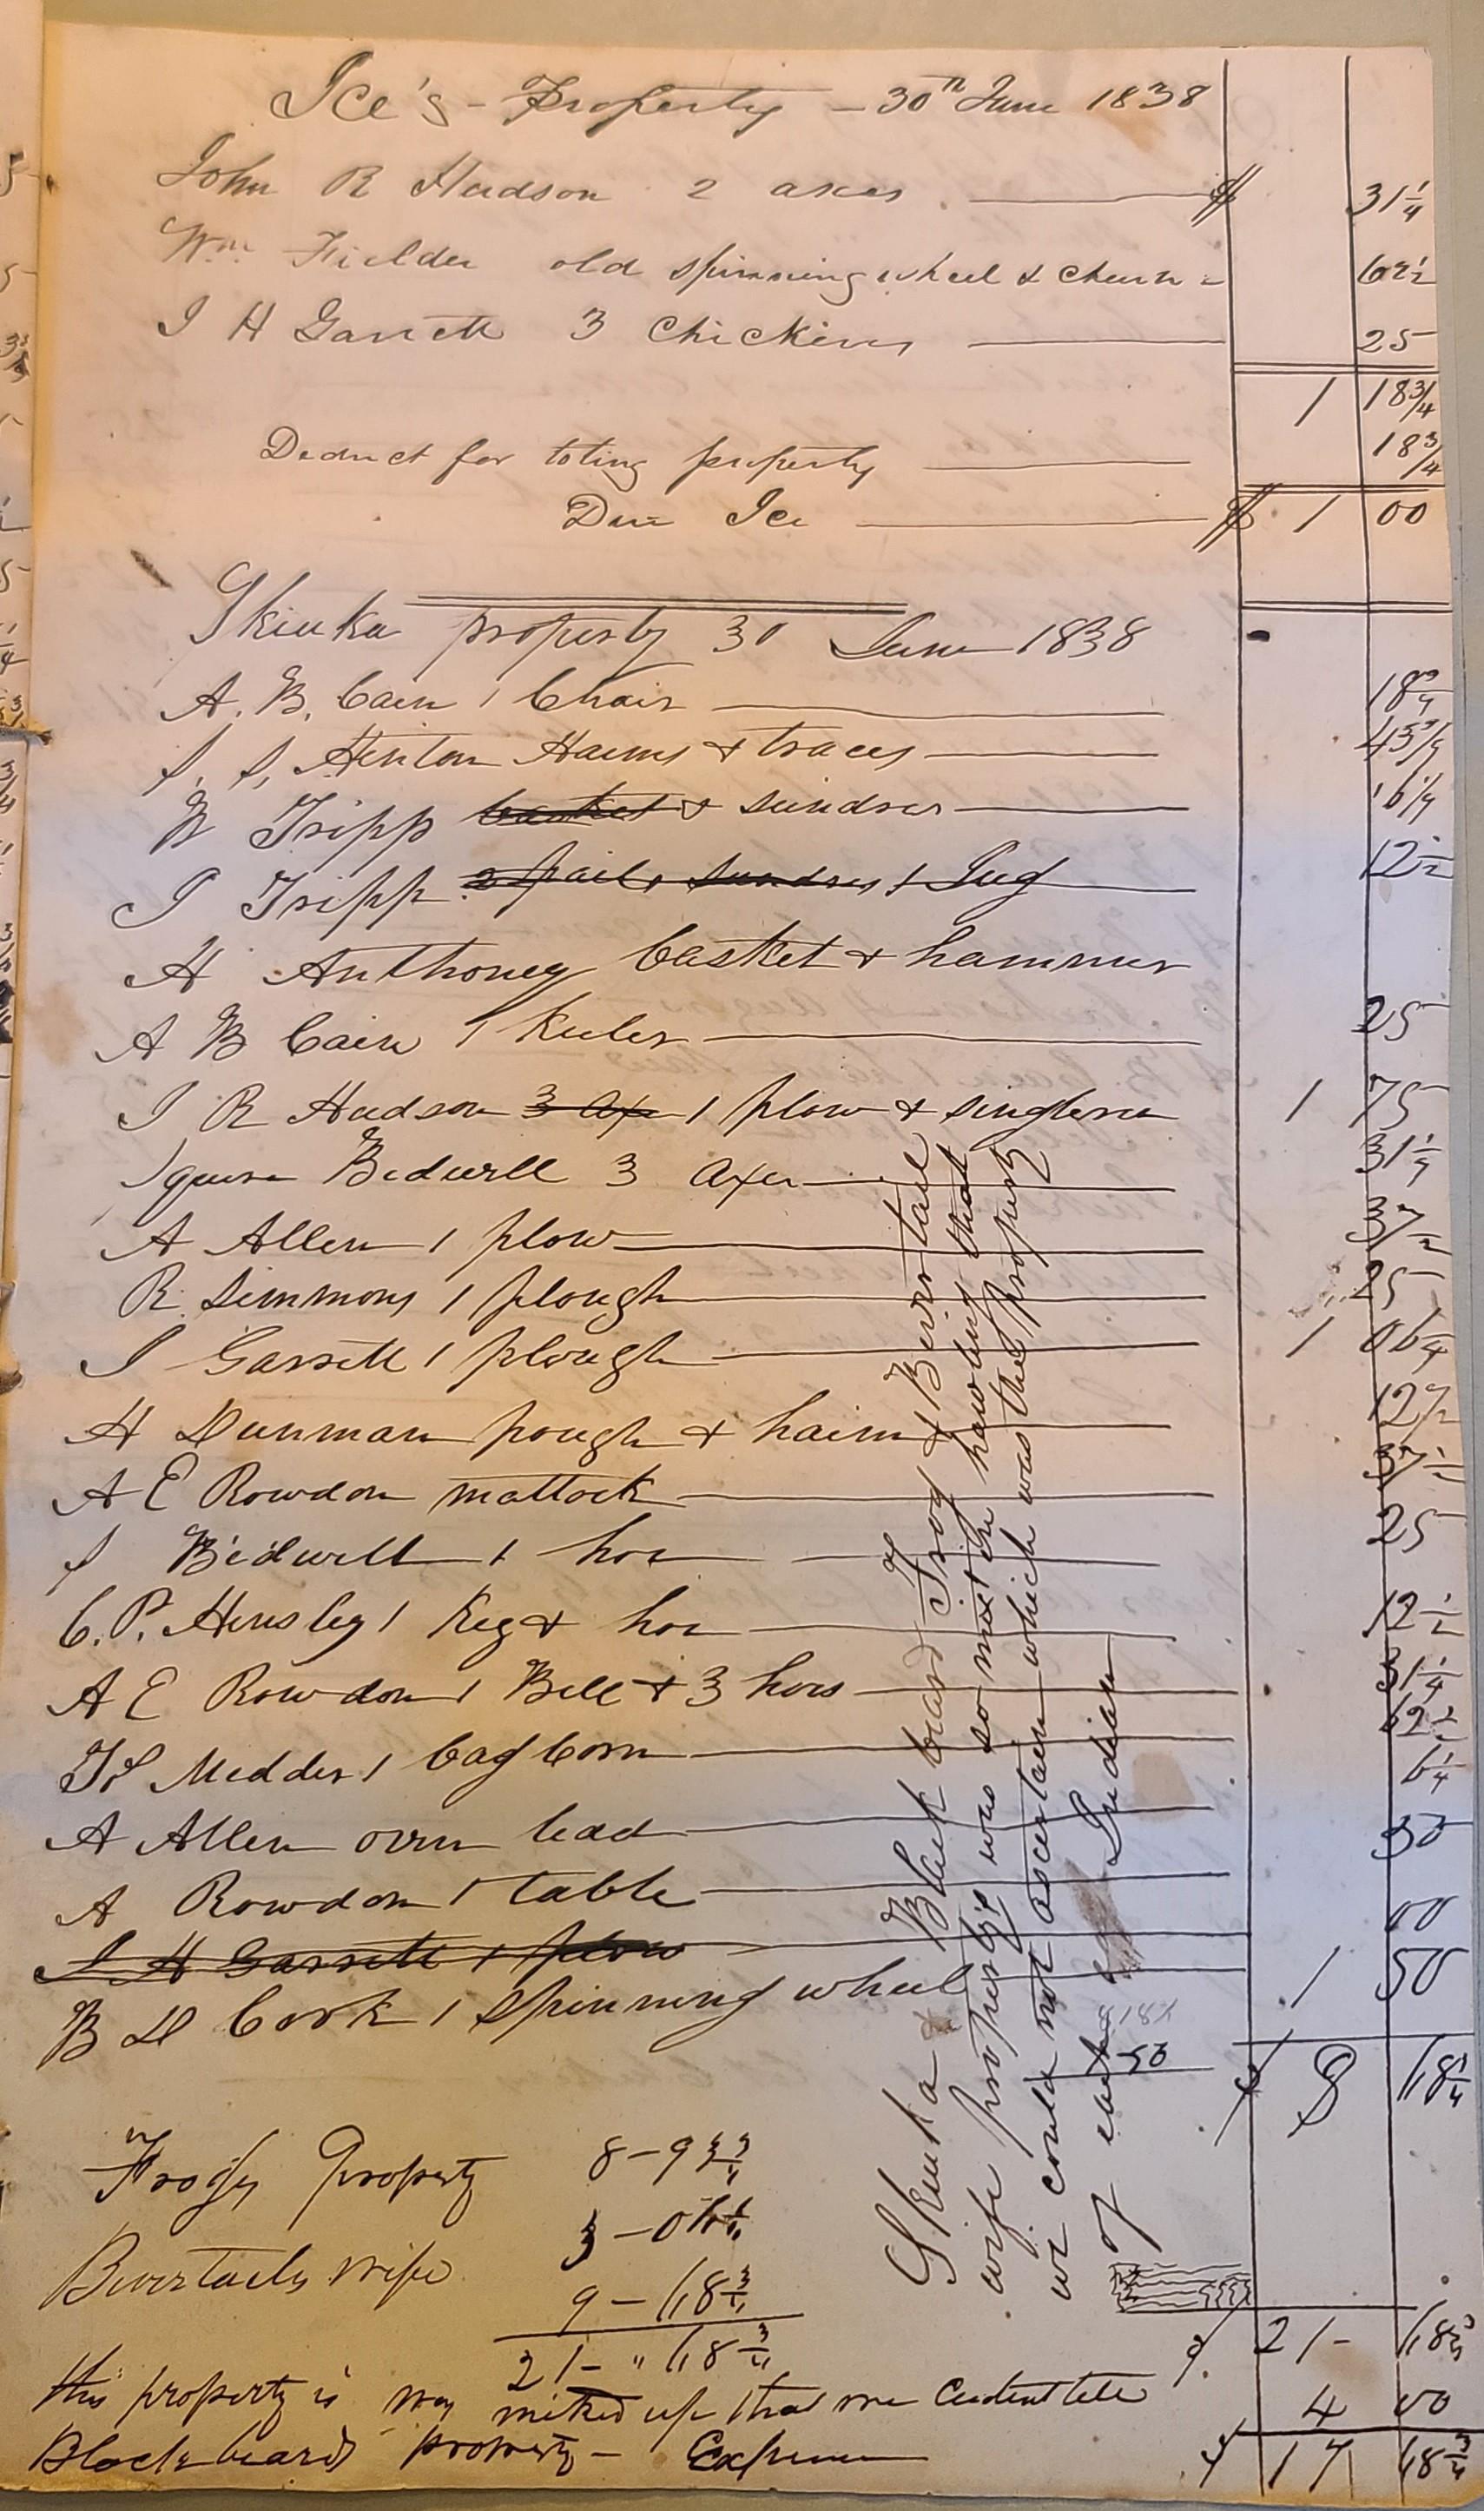 Ice's - Property - 30th June 1838
John R Hudson 2 axes $ 31 1/4
Wm Fielder old spinning wheel & churn 62 1/2
J H Garrett 3 Chickens 25
1 18 3/4
Deduct for toting property 18 3/4
Due Ice $ 1 00
Skiuka property 30 June 1838
A. B. Cain 1 Chair 18 3/4
S. S. Hinton Haims & traces 43 3/4
W Tripp basket & sundres 6 1/4
J Tripp 2 pails sundres 1 Jug 12 1/2
H Anthoney basket & hammer
A B Cain 1 Keeler 25
J R Hudson 3 ax 1 plow & singletree 1 75
Squire Bedwell 3 axes 31 1/4
A Allen 1 plow 37 1/2
R Simmons 1 plough 25
J Garrett 1 plough 1 06 1/4
H Dunman pough & haims 12 1/2
A E Rowdon mattock 37 1/2
S Bedwell 1 hoe 25
C. P. Hensley 1 Keg & hoe 12 1/2
A E Rowdon 1 Bell & 3 hoes 31 1/4
Medder 1 bag corn 62 1/2
A Allen oven lead 6 1/4
A Rowdon 1 table 50
J H Garrett 1 plow
B D Cook 1 spinning wheel 1 50
50
Skiuka Black beard Frog & Bever tail
wife property was so mixt in hawling that
we could not ascertain which was the property
of each Indian
Frogs Property 8 - 93 3/4
3 - 06 1/4
Bevertails wife 9 - 18 3/4
21 - " 18 3/4
21 - 18 3/4
this property is mixed up that we
4 00
Black beards property - Expense
17 18 3/4